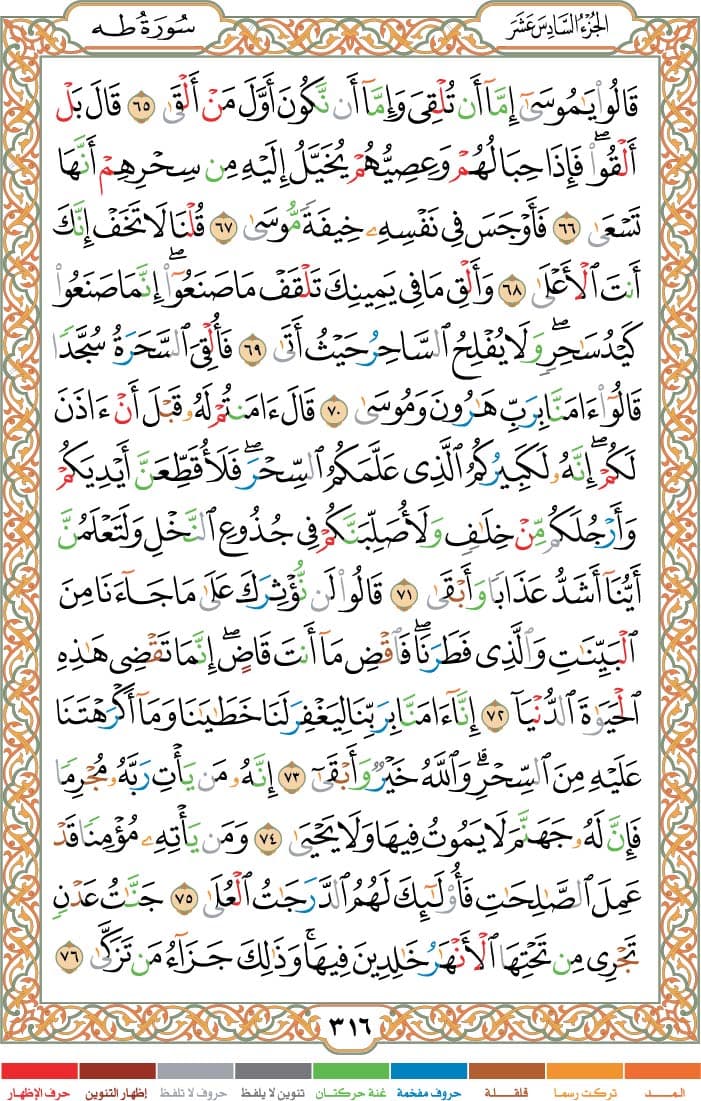 سُورَةُ طه
الجُزْءُ السَّادِسَ عَشَرَ
قَالُوا۟ يَـٰمُوسَىٰٓ إِمَّآ أَن تُلْقِىَ وَإِمَّآ أَن نَّكُونَ أَوَّلَ مَنْ أَلْقَىٰ ٦٥ قَالَ بَلْ
أَلْقُوا۟ ۖ فَإِذَا حِبَالُهُمْ وَعِصِيُّهُمْ يُخَيَّلُ إِلَيْهِ مِن سِحْرِهِمْ أَنَّهَا
تَسْعَىٰ ٦٦ فَأَوْجَسَ فِى نَفْسِهِۦ خِيفَةً مُّوسَىٰ ٦٧ قُلْنَا لَا تَخَفْ إِنَّكَ
أَنتَ ٱلْأَعْلَىٰ ٦٨ وَأَلْقِ مَا فِى يَمِينِكَ تَلْقَفْ مَا صَنَعُوٓا۟ ۖ إِنَّمَا صَنَعُوا۟
كَيْدُ سَـٰحِرٍ ۖ وَلَا يُفْلِحُ ٱلسَّاحِرُ حَيْثُ أَتَىٰ ٦٩ فَأُلْقِىَ ٱلسَّحَرَةُ سُجَّدًا
قَالُوٓا۟ ءَامَنَّا بِرَبِّ هَـٰرُونَ وَمُوسَىٰ ٧٠ قَالَ ءَامَنتُمْ لَهُۥ قَبْلَ أَنْ ءَاذَنَ
لَكُمْ ۖ إِنَّهُۥ لَكَبِيرُكُمُ ٱلَّذِى عَلَّمَكُمُ ٱلسِّحْرَ ۖ فَلَأُقَطِّعَنَّ أَيْدِيَكُمْ
وَأَرْجُلَكُم مِّنْ خِلَـٰفٍ وَلَأُصَلِّبَنَّكُمْ فِى جُذُوعِ ٱلنَّخْلِ وَلَتَعْلَمُنَّ
أَيُّنَآ أَشَدُّ عَذَابًا وَأَبْقَىٰ ٧١ قَالُوا۟ لَن نُّؤْثِرَكَ عَلَىٰ مَا جَآءَنَا مِنَ
ٱلْبَيِّنَـٰتِ وَٱلَّذِى فَطَرَنَا ۖ فَٱقْضِ مَآ أَنتَ قَاضٍ ۖ إِنَّمَا تَقْضِى هَـٰذِهِ
ٱلْحَيَوٰةَ ٱلدُّنْيَآ ٧٢ إِنَّآ ءَامَنَّا بِرَبِّنَا لِيَغْفِرَ لَنَا خَطَـٰيَـٰنَا وَمَآ أَكْرَهْتَنَا
عَلَيْهِ مِنَ ٱلسِّحْرِ ۗ وَٱللَّهُ خَيْرٌ وَأَبْقَىٰٓ ٧٣ إِنَّهُۥ مَن يَأْتِ رَبَّهُۥ مُجْرِمًا
فَإِنَّ لَهُۥ جَهَنَّمَ لَا يَمُوتُ فِيهَا وَلَا يَحْيَىٰ ٧٤ وَمَن يَأْتِهِۦ مُؤْمِنًا قَدْ
عَمِلَ ٱلصَّـٰلِحَـٰتِ فَأُو۟لَـٰٓئِكَ لَهُمُ ٱلدَّرَجَـٰتُ ٱلْعُلَىٰ ٧٥ جَنَّـٰتُ عَدْنٍ
تَجْرِى مِن تَحْتِهَا ٱلْأَنْهَـٰرُ خَـٰلِدِينَ فِيهَا ۚ وَذَٰلِكَ جَزَآءُ مَن تَزَكَّىٰ ٧٦
٣١٦
المــــد تركت رسما قلقـــلة حروف مفخمة غنة حركتان تنوين لا يلفظ حروف لا تلفظ إظهار التنوين حرف الإظهار